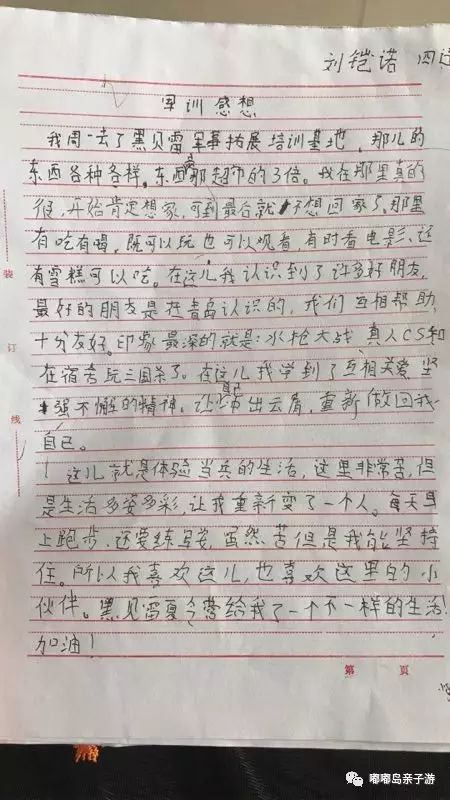 刘铠诺 四连
军训感想
我周一去了黑贝雷军事拓展培训基地,那儿的
东西各种各样。东西是那超市的3倍。我在那里真的
很,开始肯定想家,可到最后就不想回家了。那里
有吃有喝,既可以玩也可以观看,有时看电影,还
有雪糕可以吃。在这儿我认识到了许多好朋友,
最好的朋友是在青岛认识的,我们互相帮助,
十分友好。印象最深的就是:水枪大战、真人CS和
在宿舍玩三国杀了。在这儿我学到了互相关爱、坚
强不懈的精神,让自己冲出云层,重新做回我
自己。
这儿就是体验当兵的生活,这里非常苦,但
是生活多姿多彩,让我重新变了一个人。每天早
上跑步,还要练军姿,虽然苦但是我能坚持
住。所以我喜欢这儿,也喜欢这里的小
伙伴。黑贝雷夏令营给我了一个不一样的生活!
加油!
装
订
线
第 页
嘟嘟岛亲子游